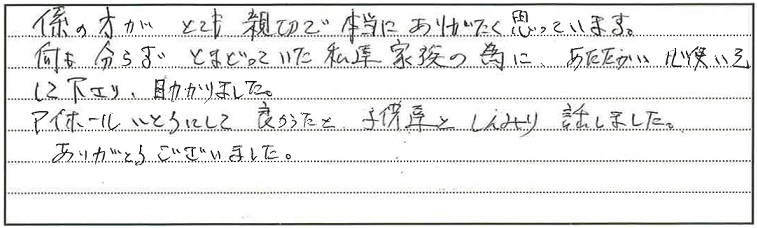 係の方が とても 親切で 本当に ありがたく思っています。
何も 分らず とまどっていた 私達 家族の 為に、あたたかい 心使いを
して下さり、助かりました。
アイホール いとうにして 良かったと 子供達と しんみり 話しました。
ありがとうございました。